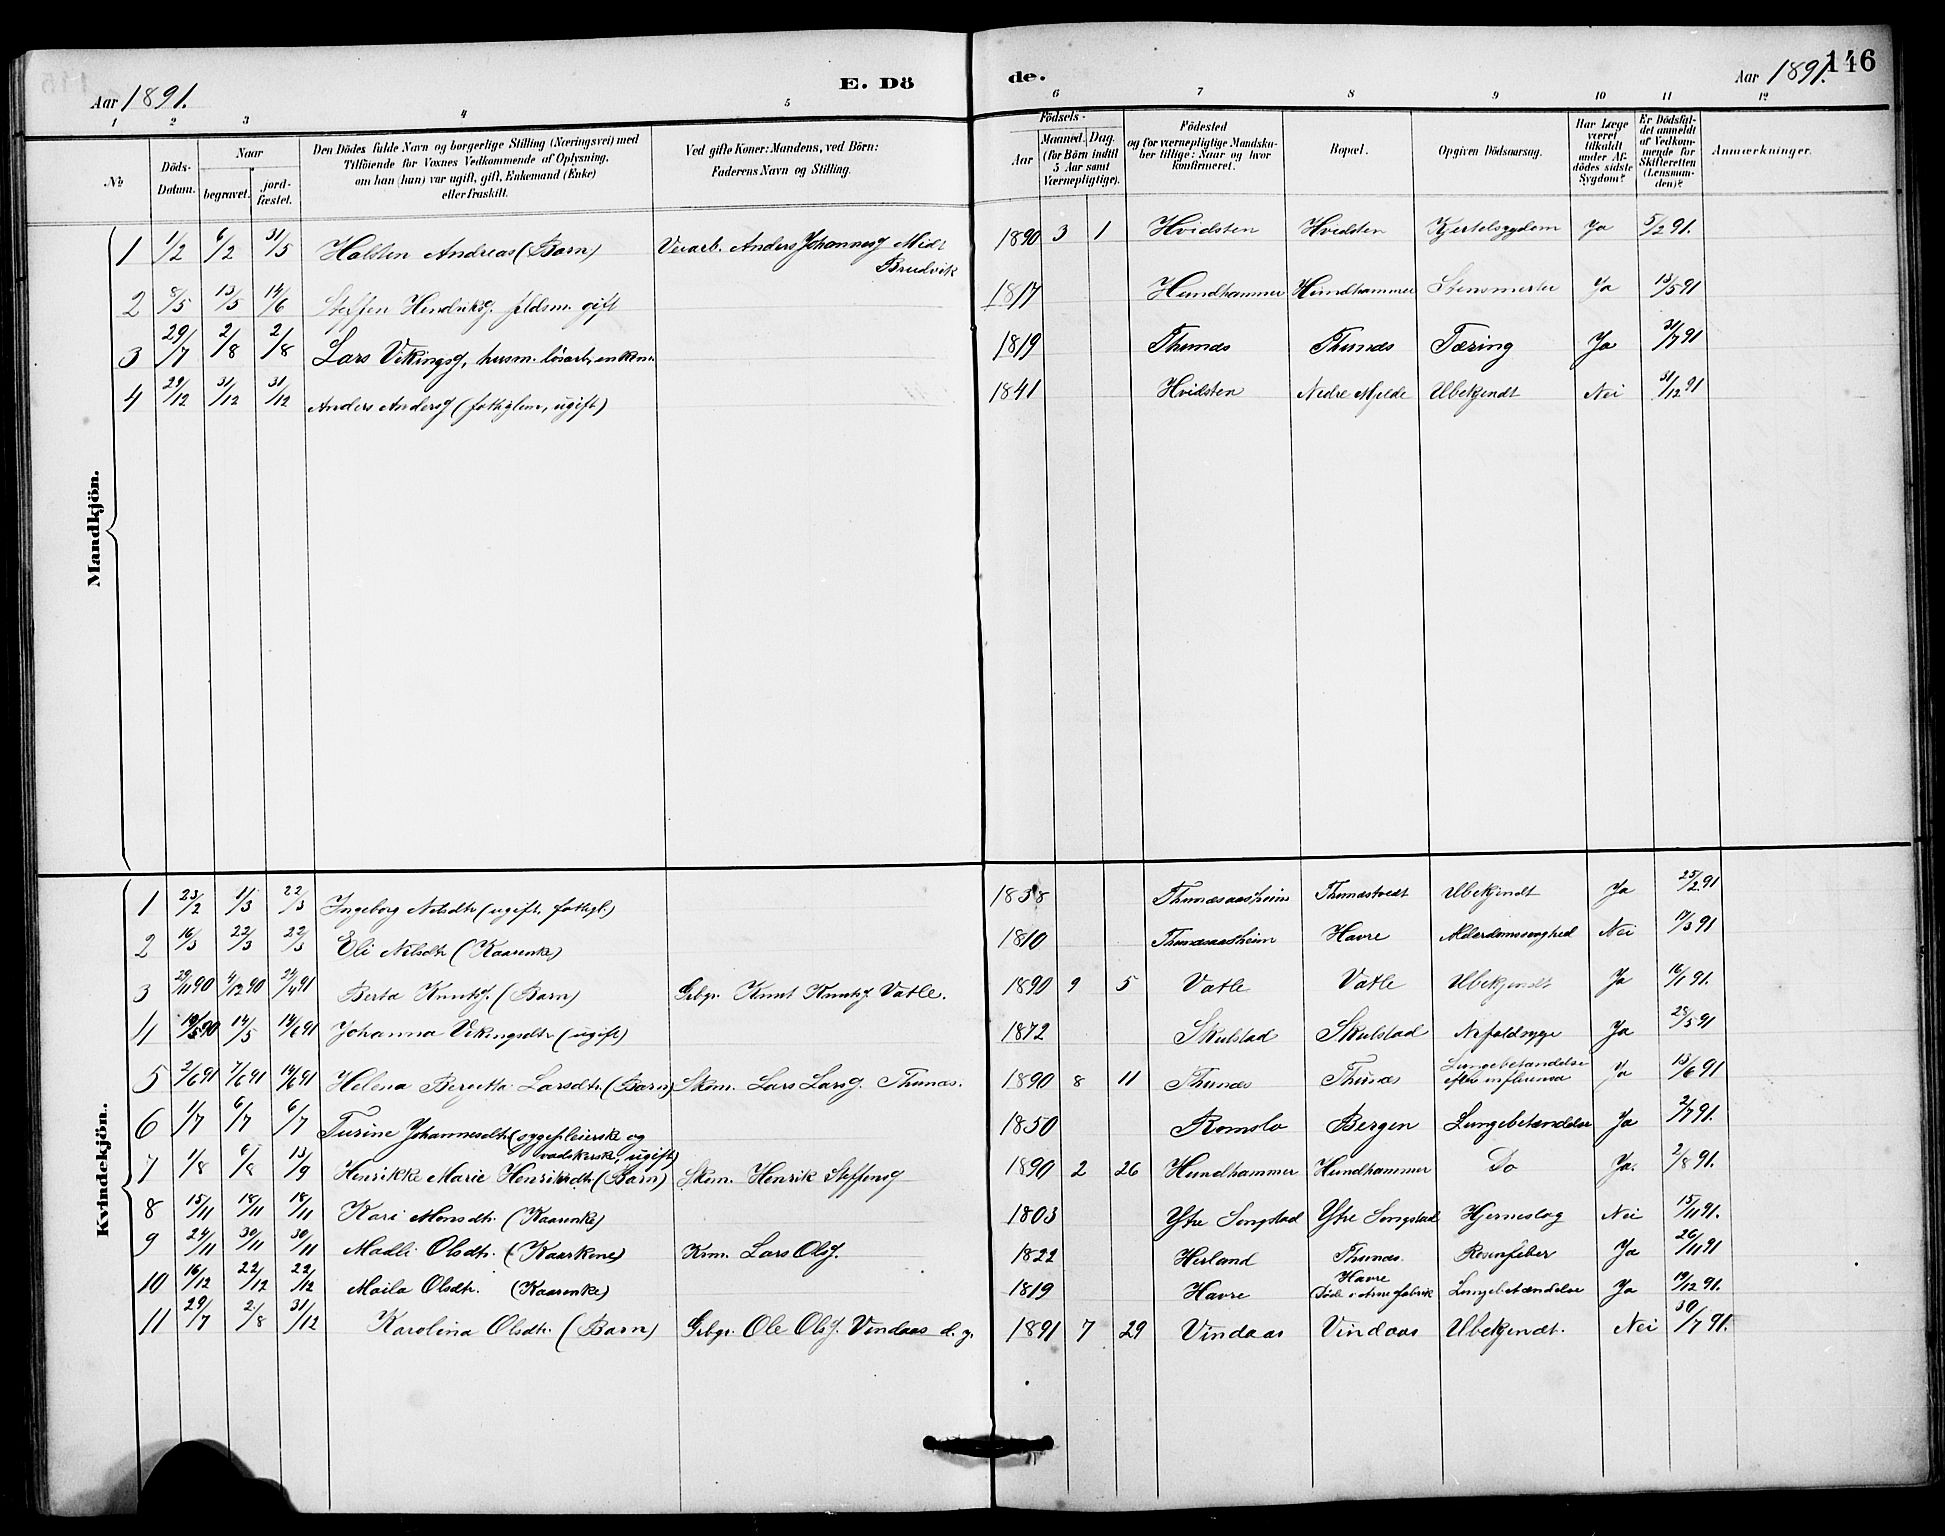 146
Aar 1891. E. Dö de. Aar 1891.
1 2 3 4 5 6 7 8 9 10 11 12
No Döds-Datum. Naar begravet. jord-fæstet. Den Dödes fulde Navn og borgerlige Stilling (Næringsvei) med Tilföiende for Voxnes Vedkommende af Oplysning, om han (hun) var ugift, gift, Enkemand (Enke) eller fraskilt. Ved gifte Koner: Mandens, ved Börn: Faderens Navn og Stilling. Födsels- Aar Maaned. Dag. (for Börn indtil 5 Aar samt Værnepligtige). Födested og for værnepligtige Mandskaber tillige: Naar og hvor konfirmeret. Bopæl. Opgiven Dödsaarsag. Har Læge været tilkaldt under Afdödes sidste Sygdom? Er Dödsfaldet anmeldt af Vedkommende for Skifteretten (Lensmanden)? Anmærkninger.
Mandkjön.
1 1/2 6/2 31/5 Halsten Andreas (Barn) Veiarb. Anders Johannesg Midt Brudvik 1890 3 1 Hvidsten Hvidsten Kjertelsygdom Ja 5/2 91.
2 8/5 13/5 14/6 Steffen Hendriksg. gift 1817 Hundhammer Hundhammer Ja 13/5 91
3 29/7 2/8 2/8 Lars Vikingsg, husm. enkem. 1819 Thunæs Thunæs Tæring Ja 31/7 91
4 29/12 31/12 31/12 Anders Andersg (fattiglem, ugift) 1841 Hvidsten Nedre Mjelde Ubekjendt Nei 31/12 91
Kvindekjön.
1 23/2 1/3 22/3 Ingeborg Nelsdtr (ugift, fattigl.) 1838 Thunæsaasheim Thunæstvedt Ubekjendt Ja 25/2 91
2 16/3 22/3 22/3 Eli Nelsdtr (Kaarenke) 1810 Thunæsaasheim Havre Alderdomssvaghed Nei 19/3 91
3 29/11 90 4/12 90 Berta Knutsg. (Barn) Grbgr. Knut Knutsg Vatle. 1890 9 5 Vatle Vatle Ubekjendt Ja 16/1 91.
4 14/5 14/6 91 Johanna Vikingsdtr (ugift) 1872 Skulstad Skulstad Nefaldsyge Ja 23/5 91
5 2/6 91 7/6 91 14/6 91 Helena Bergitta Larsdtr. (Barn) Skom. Lars Larsg. Thunæs. 1890 8 11 Thunæs Thunæs Lungebetændelse efter influensa Ja 13/6 91
6 1/7 6/7 6/7 Turine Johannesdtr (sygepleierske og vadskerske, ugift) 1850 Romslo Bergen Lungebetændelse Ja 2/7 91.
7 1/8 6/8 13/9 Henrikke Marie Henriksdtr (Barn) Skom. Henrik Steffensg 1890 2 26 Hundhammer Hundhammer Do Ja. 2/8 91.
8 15/11 18/11 18/11 Kari Monsdtr. (Kaarenke) 1803 Ytre Songstad Ytre Songstad Hjerneslag Nei 15/11 91.
9 24/11 30/11 30/11 Madli Olsdtr. (Kaarkone) Krm. Lars Olsg. 1822 Herland Thunæs. Rosenfeber Ja 26/11 91
10 16/12 22/12 22/12 Maila Olsdtr. (Kaarenke) 1819 Havre Havre Død i Arne fabrik Lungebetændelse Ja 19/12 91.
11 29/7 2/8 31/12 Karolina Olsdtr. (Barn) Grbgr. Ole Olsg. Vindaas d. y. 1891 7 29 Vindaas Vindaas Ubekjendt. Nei 30/7 91.